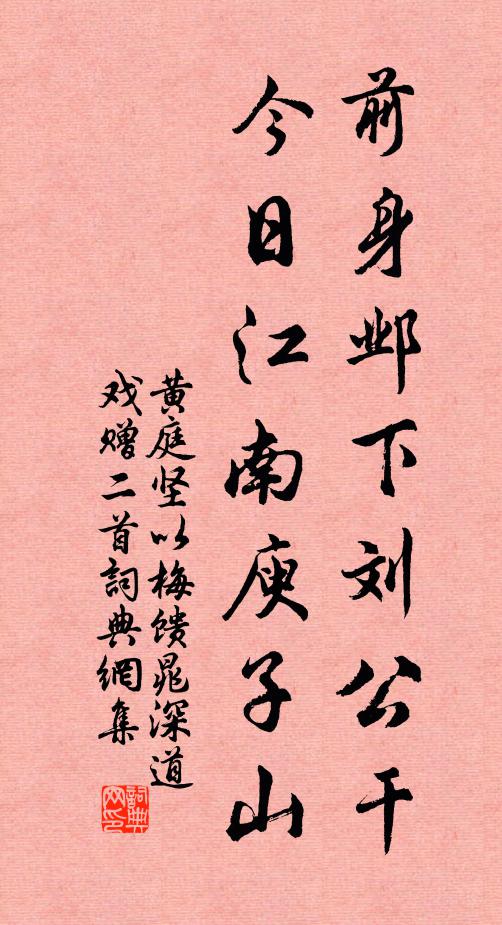 前身邺下刘公干
今日江南庾子山
黄庭坚以梅馈晁深道
戏赠二首词典網集
詞典网印